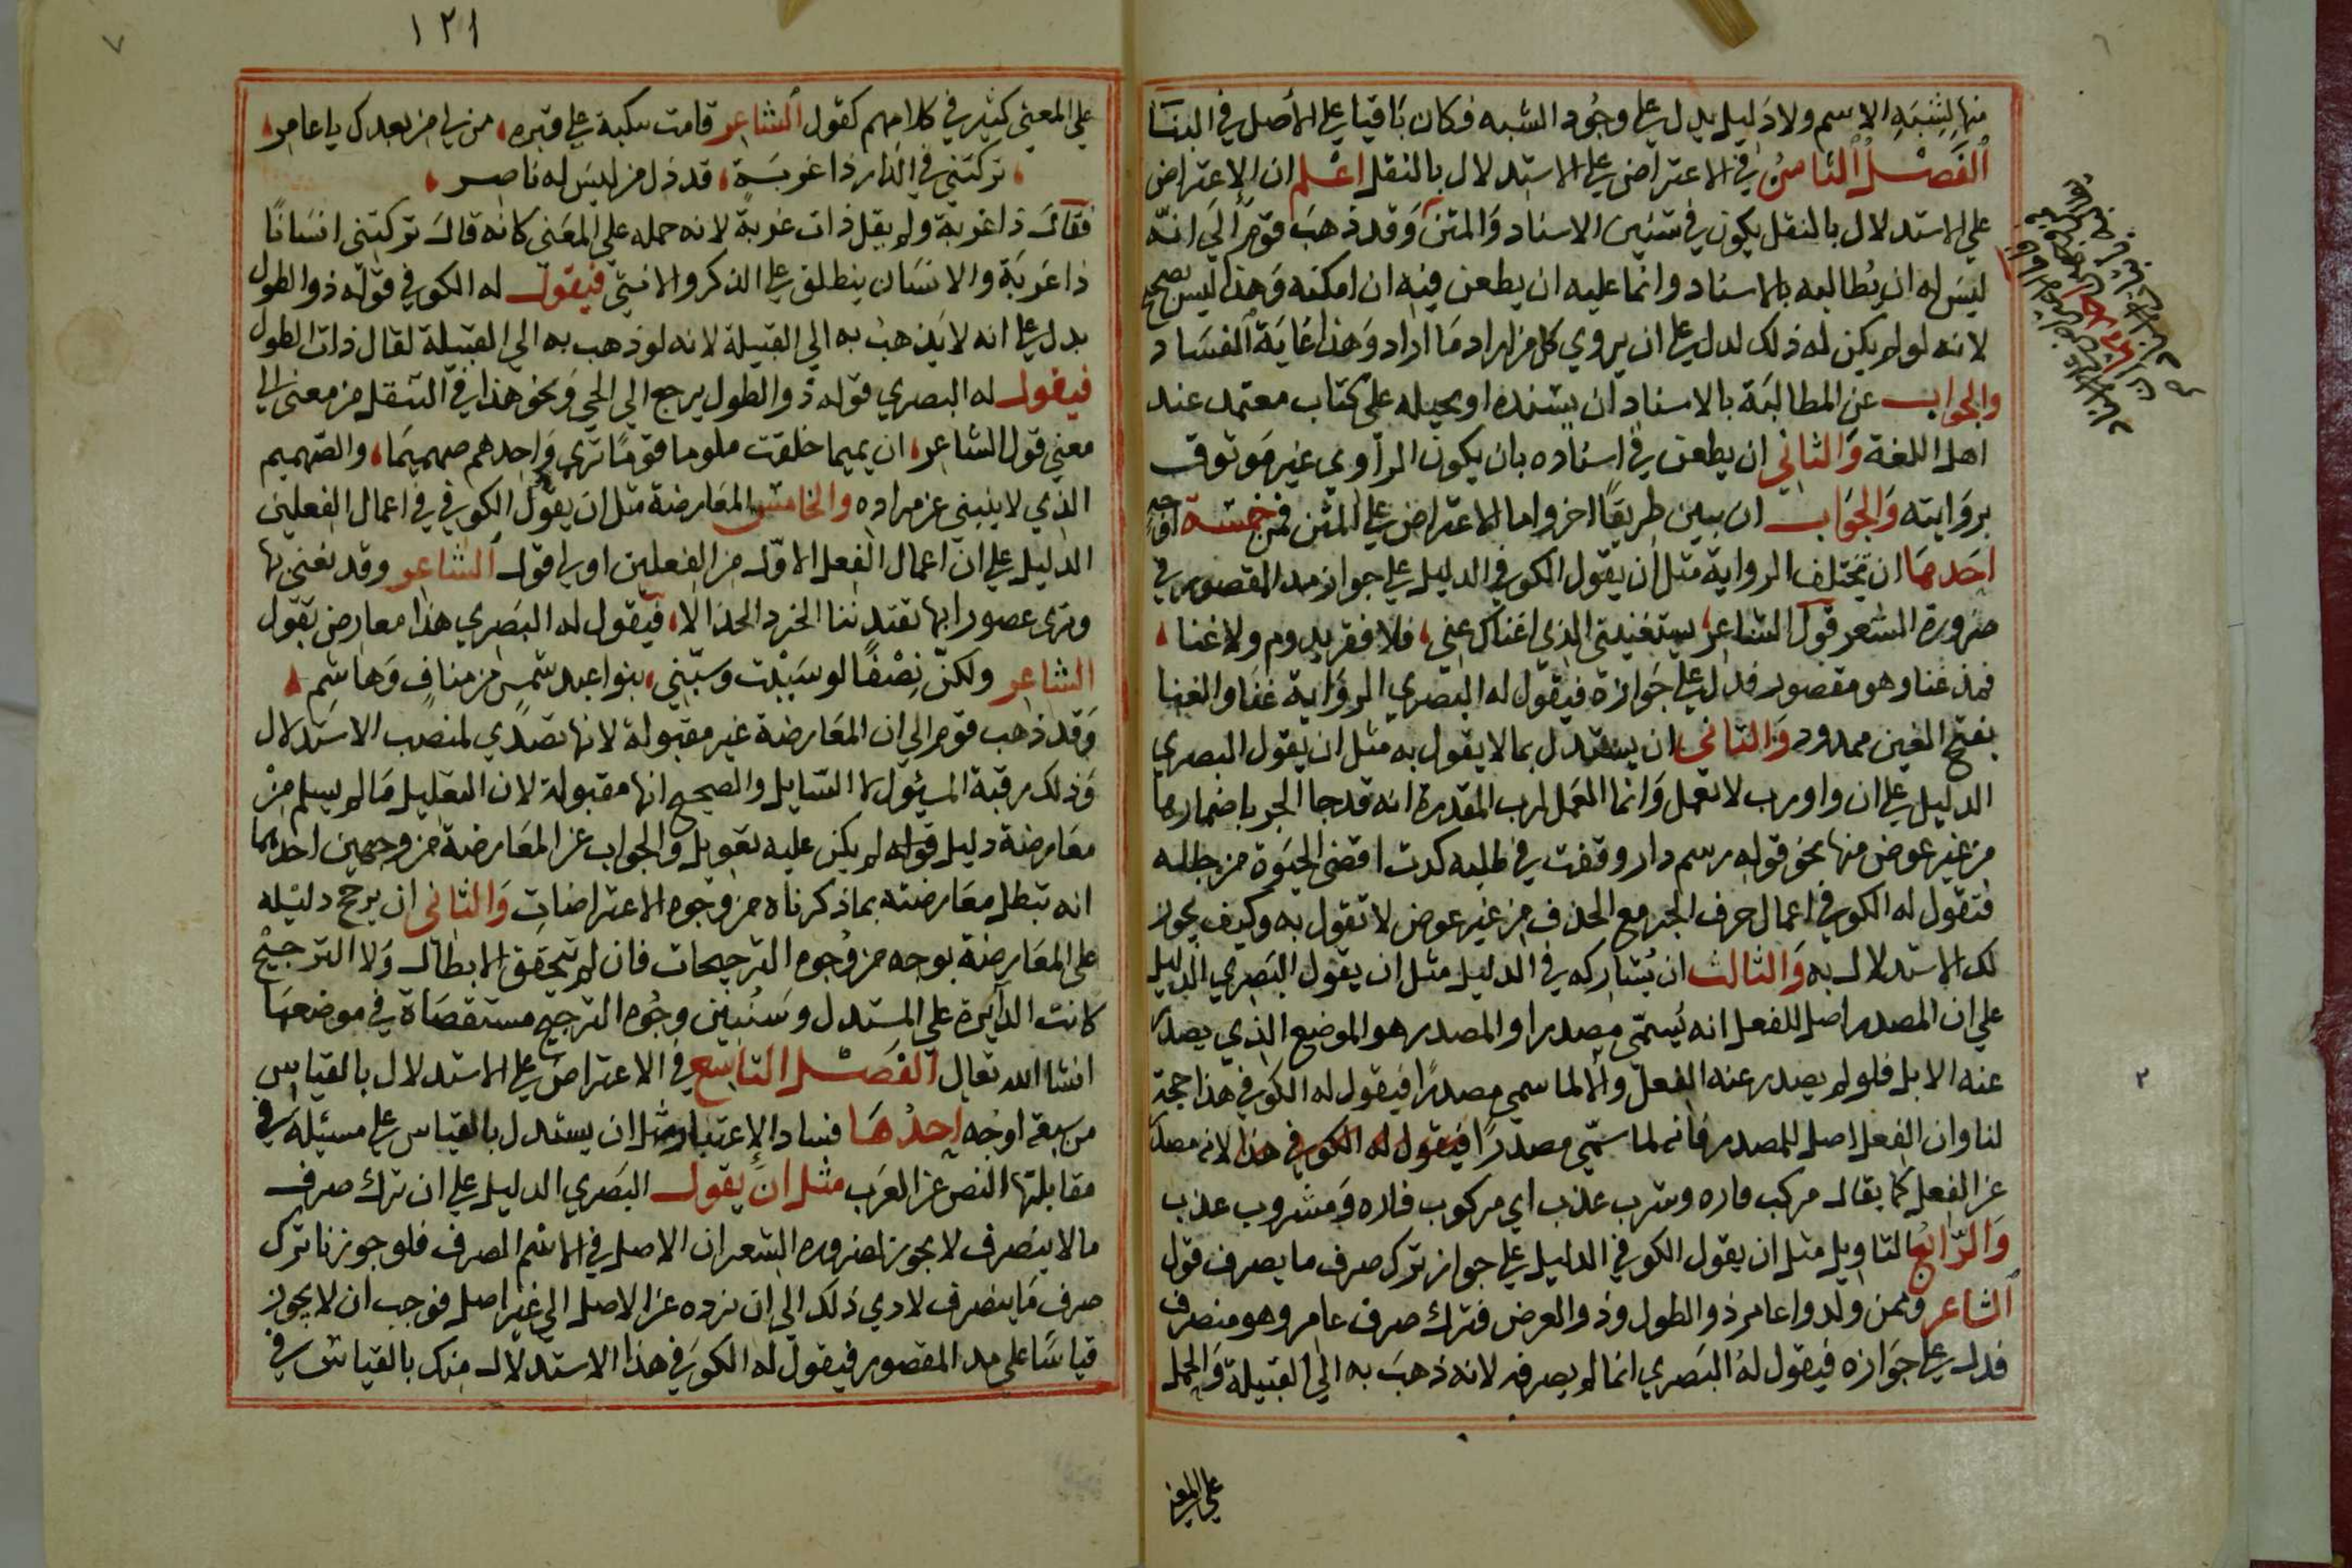 منها لشبه الاسم ولا دليل يدل على وجود الشبه فكان باقيا على الأصل في البنا
الفصل الثامن في الاعتراض على الاستدلال بالنقل اعلم ان الاعتراض
على الاستدلال بالنقل يكون في شئين الاسناد والمتن وقد ذهب قوم الى انه
ليس له ان يطالبه بالاسناد وانما عليه ان يطعن فيه ان امكنه وهذا ليس بصحيح
لانه لو لم يكن له ذلك لدل على ان يروي كل من اراد ما اراد وهذا غاية الفساد
والجواب عن المطالبة بالاسناد ان يسنده او يحيله على كتاب معتمد عند
اهل اللغة والثاني ان يطعن في اسناده بان يكون الراوي غير موثوق
بروايته والجواب ان يبين طريقا اخر واما الاعتراض على المتن فمن خمسة اوجه
احدها ان تختلف الرواية مثل ان يقول الكوفي الدليل على جواز مد المقصور في
ضرورة الشعر قول الشاعر سيغنيني الذي اغناك عني فلا فقر يدوم ولا غنا
فمد غنا وهو مقصور فدل على جوازه فيقول له البصري الرواية غنا والغنا
بفتح الغين ممدود والثاني ان يستدل بما لا يقول به مثل ان يقول البصري
الدليل على ان واو رب لا تعمل وانما العمل لرب المقدرة انه قد جا الجر باضمارها
من غير عوض منها نحو قوله رسم دار وقفت في طلله كدت اقضى الحيوة من جلله
فتقول له الكوفي اعمال حرف الجر مع الحذف من غير عوض لا تقول به وكيف يجوز
لك الاستدلال به والثالث ان يشاركه في الدليل مثل ان يقول البصري الدليل
على ان المصدر اصل للفعل انه يسمى مصدرا والمصدر هو الموضع الذي يصدر
عنه الابل فلو لم يصدر عنه الفعل والا لما سمي مصدرا فيقول له الكوفي هذا حجة
لنا وان الفعل اصل للمصدر فانه لما سمي مصدرا فيقول له الكوفي هذا لانه مصدر
عن الفعل كما يقال مركب فاره وشرب عذب اي مركوب فاره ومشروب عذب
والرابع التاويل مثل ان يقول الكوفي الدليل على جواز ترك صرف ما يصرف قول
الشاعر وممن ولدوا عامر ذو الطول وذو العرض فترك صرف عامر وهو منصرف
فدل على جوازه فيقول له البصري انما لم يصرفه لانه ذهب به الى القبيلة والحمل
على المعنى
١٢١
على المعنى كثير في كلامهم كقول الشاعر قامت تبكيه على قبره من لي من بعدك يا عامر
تركتني في الدار ذا غربة قد ذل من ليس له ناصر
فقال ذا غربة ولم يقل ذات غربة لانه حمله على المعنى كانه قال تركتني انسانا
ذا غربة والانسان ينطلق على الذكر والانثى فيقول له الكوفي قوله ذو الطول
يدل على انه لا يذهب به الى القبيلة لانه لو ذهب به الى القبيلة لقال ذات الطول
فيقول له البصري قوله ذو الطول يرجع الى الحي ونحو هذا في التنقل من معنى الى
معنى قول الشاعر ان تميما خلقت ملوما قوما ترى واحدهم صهميما والصهميم
الذي لا ينثني عن مراده والخامس المعارضة مثل ان يقول الكوفي في اعمال الفعلين
الدليل على ان اعمال الفعل الاول من الفعلين اولى قول الشاعر وقد نغنى بها
ونرى عصورا بها تقتدننا الخرد الخذالا فيقول له البصري هذا معارض بقول
الشاعر ولكن نصفا لو سببت وسبني بنوا عبد شمس من مناف وهاشم
وقد ذهب قوم الى ان المعارضة غير مقبولة لانها تصدي لمنصب الاستدلال
وذلك رتبة المسئول لا السايل والصحيح انها مقبولة لان التعليل ما لم يسلم من
معارضة دليل قوله لم يكن عليه تعويل والجواب عن المعارضة من وجهين احدهما
انه تبطل معارضته بما ذكرناه من وجوه الاعتراضات والثاني ان يرجح دليله
على المعارضة بوجه من وجوه الترجيحات فان لم يتحقق الابطال ولا الترجيح
كانت الدايرة على المستدل وسنبين وجوه الترجيح مستقصاة في موضعها
انشا الله تعالى الفصل التاسع في الاعتراض على الاستدلال بالقياس
من سبعة اوجه احدها فساد الاعتبار مثل ان يستدل بالقياس على مسئلة في
مقابلتها النص عن العرب مثل ان يقول البصري الدليل على ان ترك صرف
ما لا ينصرف لا يجوز لضروره الشعر ان الاصل في الاسم الصرف فلو جوزنا ترك
صرف ما ينصرف لادي ذلك الى ان نرده عن الاصل الى غير اصل فوجب ان لا يجوز
قياسا على مد المقصور فيقول له الكوفي هذا الاستدلال منك بالقياس في